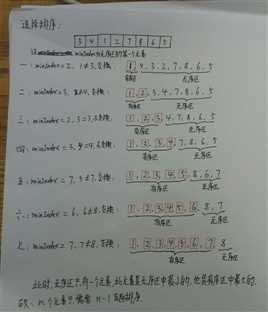 选择排序:
3 4 1 2 7 8 6 5
minIndex无序区的第一个元素
一: minIndex=2, 1≠3, 交换 1, 4, 3, 2, 7, 8, 6, 5
有序区 无序区
二: minIndex=3, 2≠4, 交换: 1, 2, 3, 4, 7, 8, 6, 5
有序区 无序区
三: minIndex=2, 3=3, 不交换: 1, 2, 3, 4, 7, 8, 6, 5
有序区 无序区
四: minIndex=3, 4=4, 不交换: 1, 2, 3, 4, 7, 8, 6, 5
有序区 无序区
五: minIndex=7, 5≠7, 交换: 1, 2, 3, 4, 5, 8, 6, 7
有序区 无序区
六: minIndex=6, 6≠8, 交换: 1, 2, 3, 4, 5, 6, 8, 7
有序区 无序区
七: minIndex=7, 7≠8, 交换: 1, 2, 3, 4, 5, 6, 7, 8
有序区 无序区
此时, 无序区只有一个元素, 此元素是无序区中最小的, 也是有序区中最大的.
故: n个元素只需要 n-1 趟排序